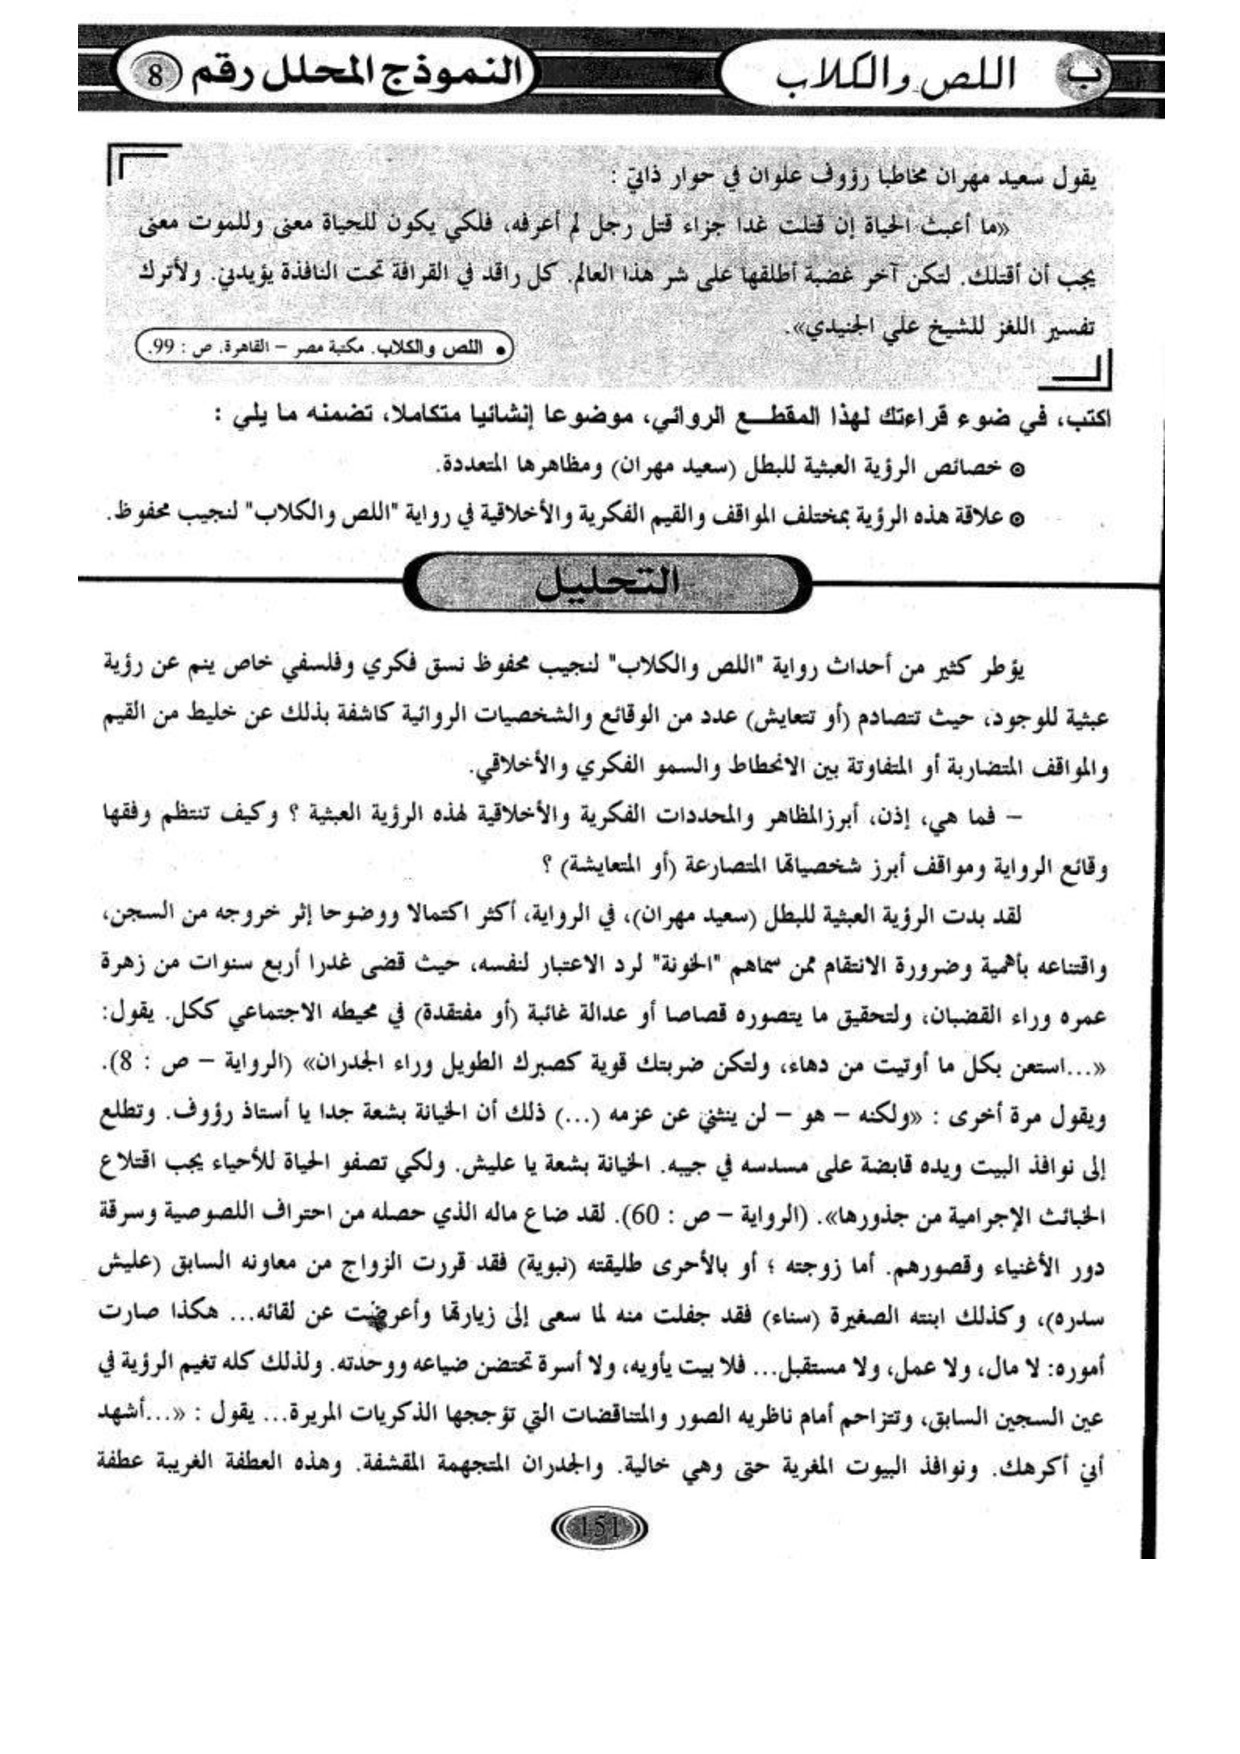 ب اللص والكلاب النموذج المحلل رقم 8
يقول سعيد مهران مخاطبا رؤوف علوان في حوار ذاتي :
«ما أعبث الحياة إن قتلت غدا جزاء قتل رجل لم أعرفه، فلكي يكون للحياة معنى وللموت معنى
يجب أن أقتلك. لتكن آخر غضبة أطلقها على شر هذا العالم. كل راقد في القرافة تحت النافذة يؤيدني. ولأترك
تفسير اللغز للشيخ علي الجنيدي».
• اللص والكلاب. مكتبة مصر – القاهرة. ص : 99.
اكتب، في ضوء قراءتك لهذا المقطع الروائي، موضوعا إنشائيا متكاملا، تضمنه ما يلي :
⊙ خصائص الرؤية العبثية للبطل (سعيد مهران) ومظاهرها المتعددة.
⊙ علاقة هذه الرؤية بمختلف المواقف والقيم الفكرية والأخلاقية في رواية "اللص والكلاب" لنجيب محفوظ.
التحليل
يؤطر كثير من أحداث رواية "اللص والكلاب" لنجيب محفوظ نسق فكري وفلسفي خاص ينم عن رؤية
عبثية للوجود، حيث تتصادم (أو تتعايش) عدد من الوقائع والشخصيات الروائية كاشفة بذلك عن خليط من القيم
والمواقف المتضاربة أو المتفاوتة بين الانحطاط والسمو الفكري والأخلاقي.
– فما هي، إذن، أبرزالمظاهر والمحددات الفكرية والأخلاقية لهذه الرؤية العبثية ؟ وكيف تنتظم وفقها
وقائع الرواية ومواقف أبرز شخصياتها المتصارعة (أو المتعايشة) ؟
لقد بدت الرؤية العبثية للبطل (سعيد مهران)، في الرواية، أكثر اكتمالا ووضوحا إثر خروجه من السجن،
واقتناعه بأهمية وضرورة الانتقام ممن سماهم "الخونة" لرد الاعتبار لنفسه، حيث قضى غدرا أربع سنوات من زهرة
عمره وراء القضبان، ولتحقيق ما يتصوره قصاصا أو عدالة غائبة (أو مفتقدة) في محيطه الاجتماعي ككل. يقول:
«...استعن بكل ما أوتيت من دهاء، ولتكن ضربتك قوية كصبرك الطويل وراء الجدران» (الرواية – ص : 8).
ويقول مرة أخرى : «ولكنه – هو – لن ينثني عن عزمه (...) ذلك أن الخيانة بشعة جدا يا أستاذ رؤوف. وتطلع
إلى نوافذ البيت ويده قابضة على مسدسه في جيبه. الخيانة بشعة يا عليش. ولكي تصفو الحياة للأحياء يجب اقتلاع
الخبائث الإجرامية من جذورها». (الرواية – ص : 60). لقد ضاع ماله الذي حصله من احتراف اللصوصية وسرقة
دور الأغنياء وقصورهم. أما زوجته ؛ أو بالأحرى طليقته (نبوية) فقد قررت الزواج من معاونه السابق (عليش
سدره)، وكذلك ابنته الصغيرة (سناء) فقد جفلت منه لما سعى إلى زيارتها وأعرضت عن لقائه... هكذا صارت
أموره: لا مال، ولا عمل، ولا مستقبل... فلا بيت يأويه، ولا أسرة تحتضن ضياعه ووحدته. ولذلك كله تغيم الرؤية في
عين السجين السابق، وتتزاحم أمام ناظريه الصور والمتناقضات التي تؤججها الذكريات المريرة... يقول : «...أشهد
أني أكرهك. ونوافذ البيوت المغرية حتى وهي خالية. والجدران المتجهمة المقشفة. وهذه العطفة الغريبة عطفة
151